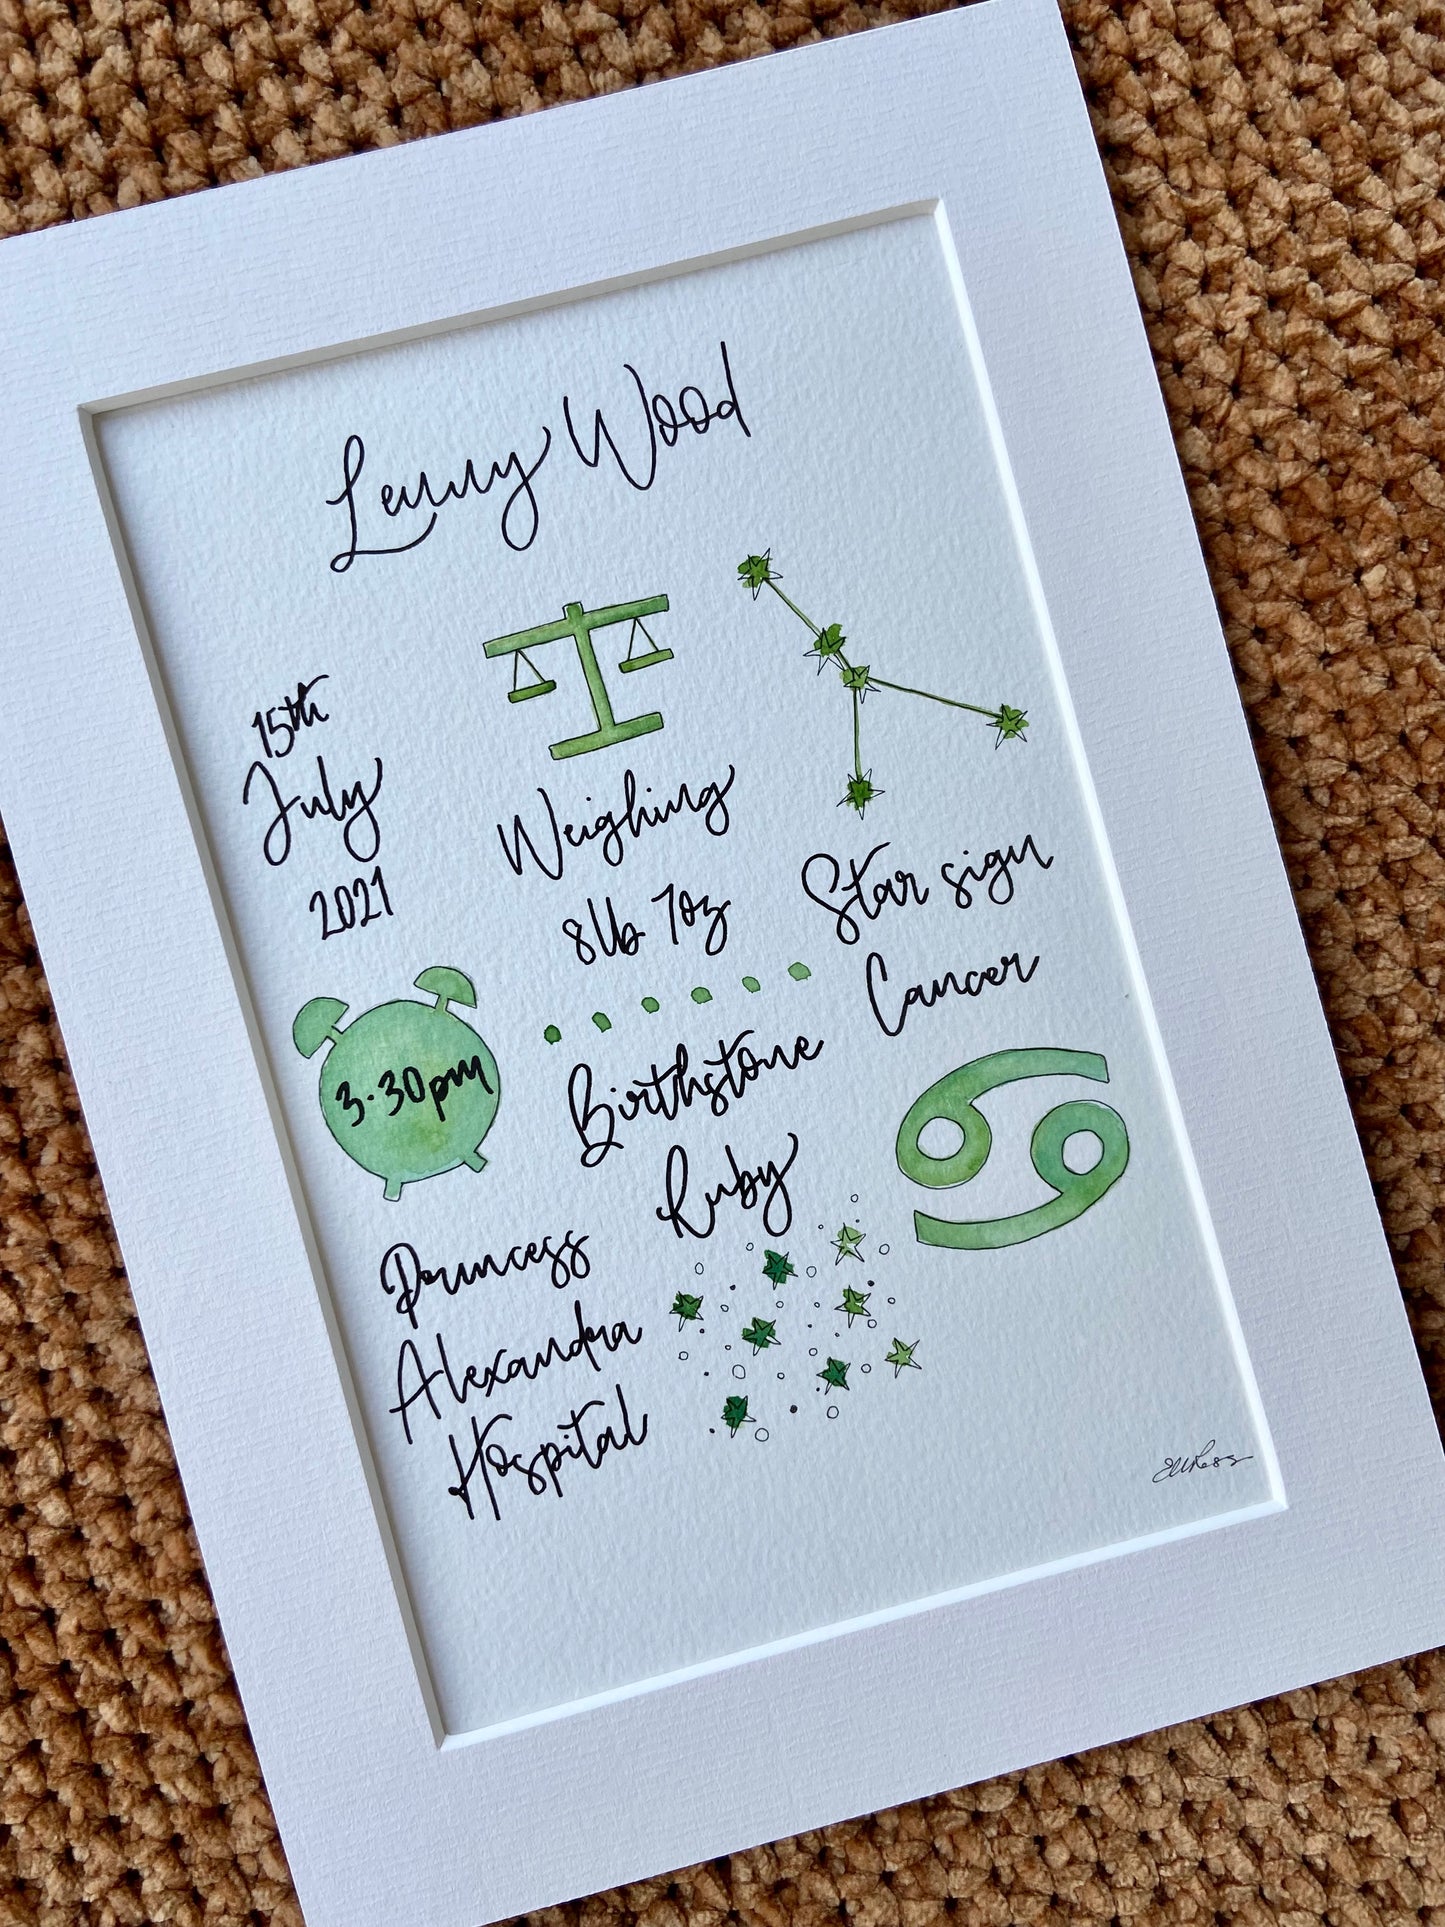 Lenny Wood
15th
July
2021
Weighing
8lb 7oz
Star sign
Cancer
3.30pm
Birthstone
Ruby
Princess
Alexandra
Hospital